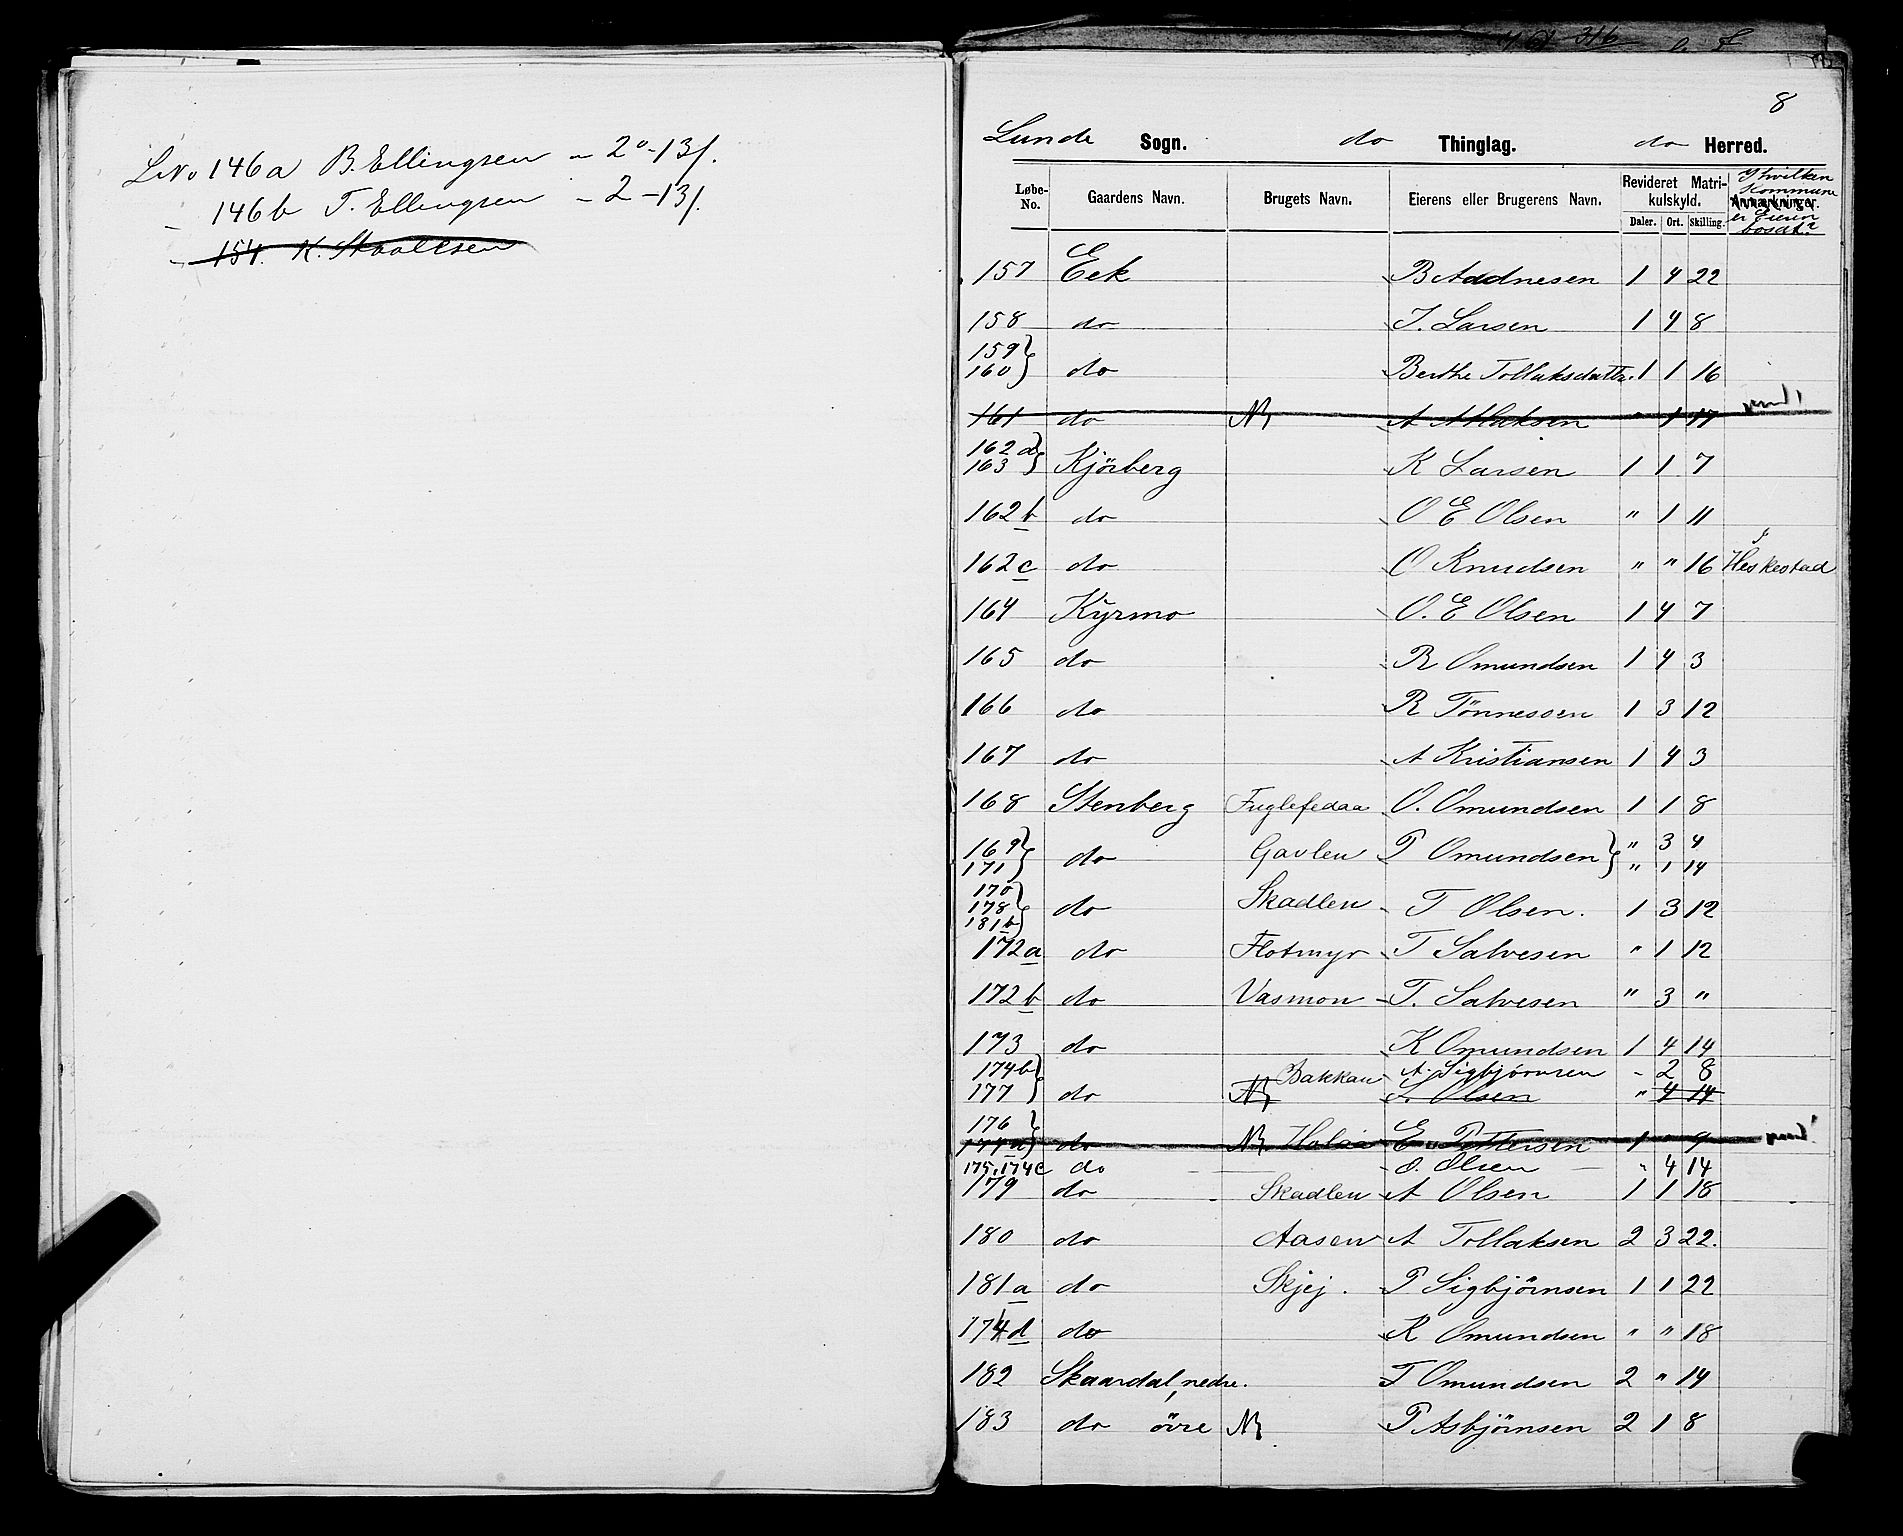 LNo 146a B. Ellingsen - 2 " - 13/.
146b T. Ellingsen - 2 - 13/.
154. K. Staalesen
8
Lunde Sogn. do Thinglag. do Herred.
Løbe-No. Gaardens Navn. Brugets Navn. Eierens eller Brugerens Navn. Revideret Matrikulskyld. Anmærkninger.
I hvilken Kommune er Eieren bosat?
Daler. Ort. Skilling.
157 Eek B Aadnesen 1 4 22
158 do T. Larsen 1 4 8
159 160 } do Berthe Tollaksdatter 1 1 16
161 do A Atlaksen " 1 17
162a 163 } Kjörberg K Larsen 1 1 7
162b do O E Olsen " 1 11
162c do O Knudsen " " 16 i Heskestad
164 Kyrmo O. E Olsen 1 4 7
165 do R Omundsen 1 4 3
166 do R Tönnessen 1 3 12
167 do A Kristiansen 1 4 3
168 Stenberg Fuglefedaa O. Omundsen 1 1 8
169 171 } do Gavlen P Omundsen } " 3 4
" 1 14
170 178 181b } do Skadlen T Olsen. 1 3 12
172a do Flotmyr T Salvesen " 1 12
172b do Vasmon T. Salvesen " 3 "
173 do K Omundsen 1 4 14
174b 177 } do Bakkan A. Sigbjörnsen - 2 8
Olsen " 4 14
176 174a } do E. Pettersen 1 " 9
175, 174c do O. Olsen " 4 14
179 do Skadlen A Olsen 1 1 18
180 do Aasen A Tollaksen 2 3 22.
181a do Skjej. P Sigbjörnsen 1 1 22
174d do R Omundsen " " 18
182 Skaardal, nedre. T Omundsen 2 " 14
183 do övre P Asbjörnsen 2 1 8